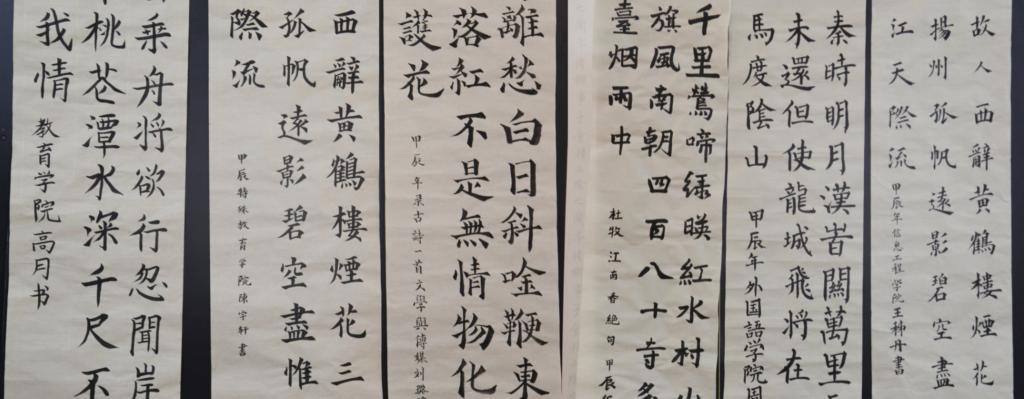 故人西辭黄鶴樓煙花
揚州孤帆遠影碧空盡
江天際流
甲辰年信息工程学院王秭丹書
秦時明月漢旹關萬里
未還但使龍城飛將在
馬度陰山
甲辰年外国語学院周
千里鶯啼绿暎紅水村山
旗風南朝四百八十寺多
臺烟雨中
杜牧江南春絶句甲辰年
離愁白日斜唫鞭東
落紅不是無情物化
護花
甲辰年录古詩一首文學與傳媒刘
西辭黄鶴樓煙花三
孤帆遠影碧空盡惟
際流
甲辰特殊教育学院陳宇軒書
乘舟将欲行忽聞岸
桃花潭水深千尺不
我情
教育学院高月书